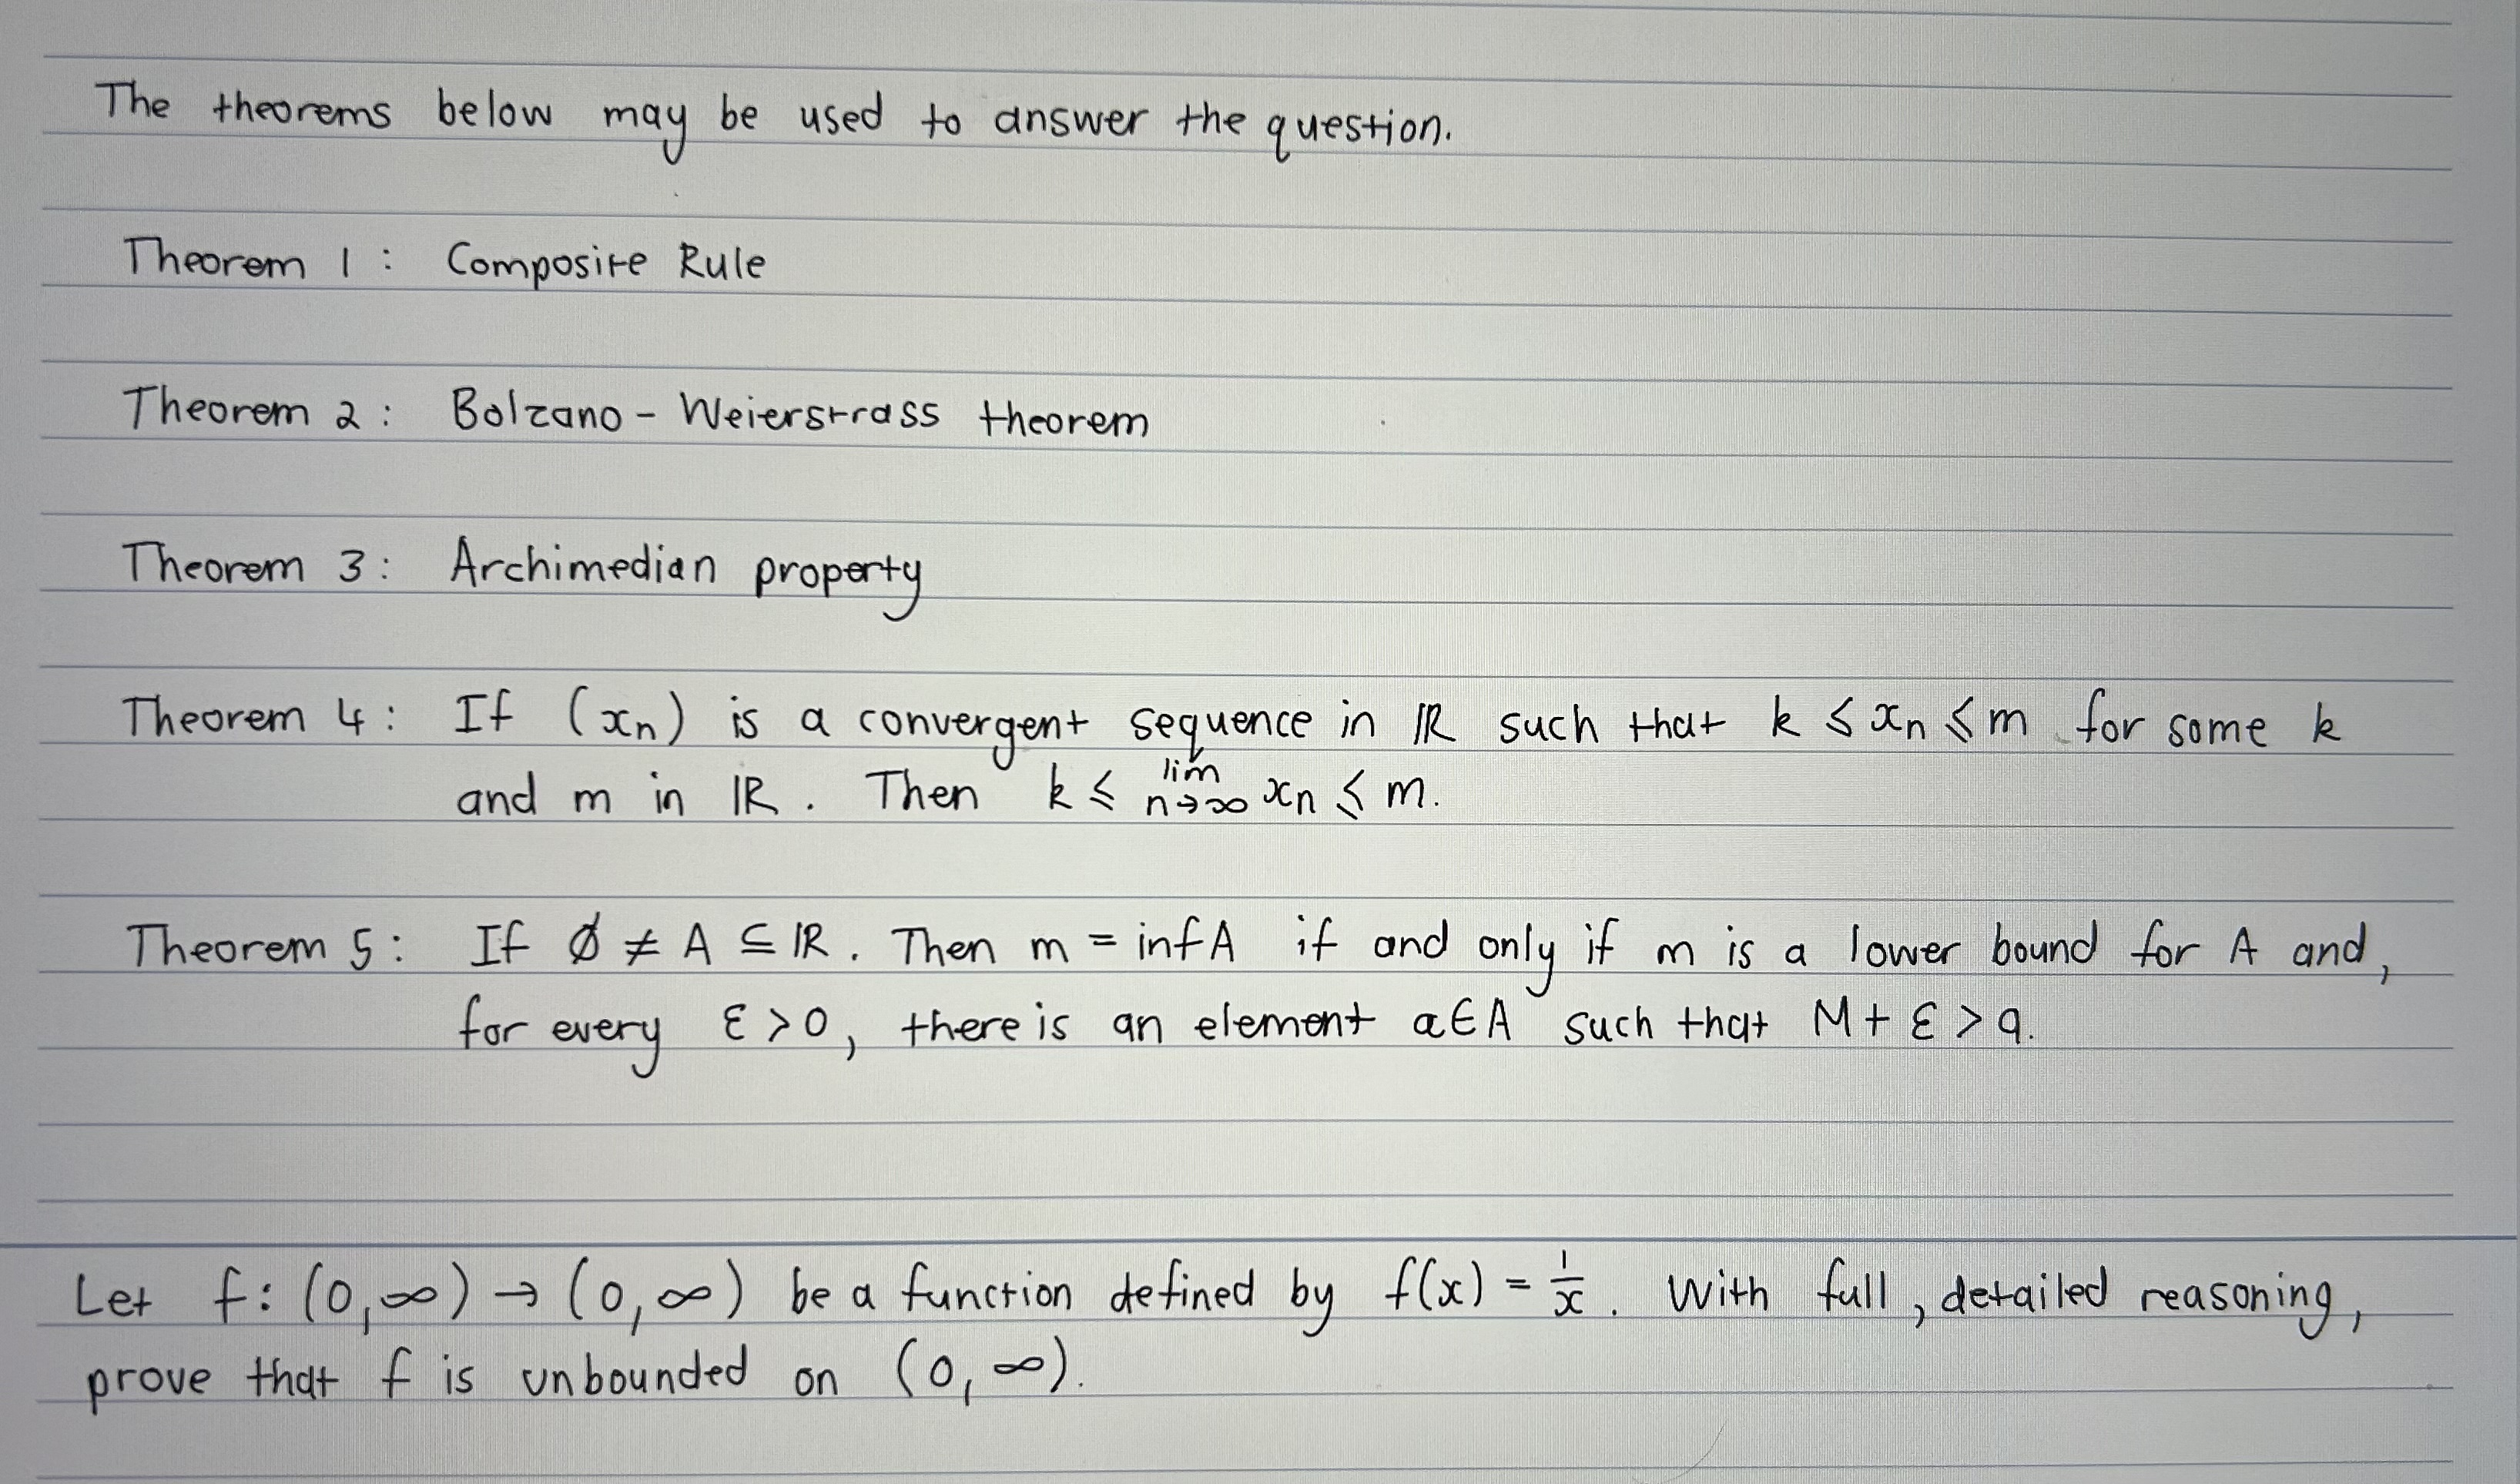 The theorems below may be used to answer the question.
Theorem 1 : Composite Rule
Theorem 2 : Bolzano - Weierstrass theorem
Theorem 3 : Archimedian property
Theorem 4 : If (xn) is a convergent sequence in ℝ such that k ≤ xn ≤ m for some k
and m in ℝ . Then k ≤ lim n→∞ xn ≤ m.
Theorem 5 : If ∅ ≠ A ⊆ ℝ . Then m = inf A if and only if m is a lower bound for A and,
for every ε > 0 , there is an element a ∈ A such that M + ε > a.
Let f : (0,∞) → (0,∞) be a function defined by f(x) = 1/x . With full, detailed reasoning,
prove that f is unbounded on (0,∞).